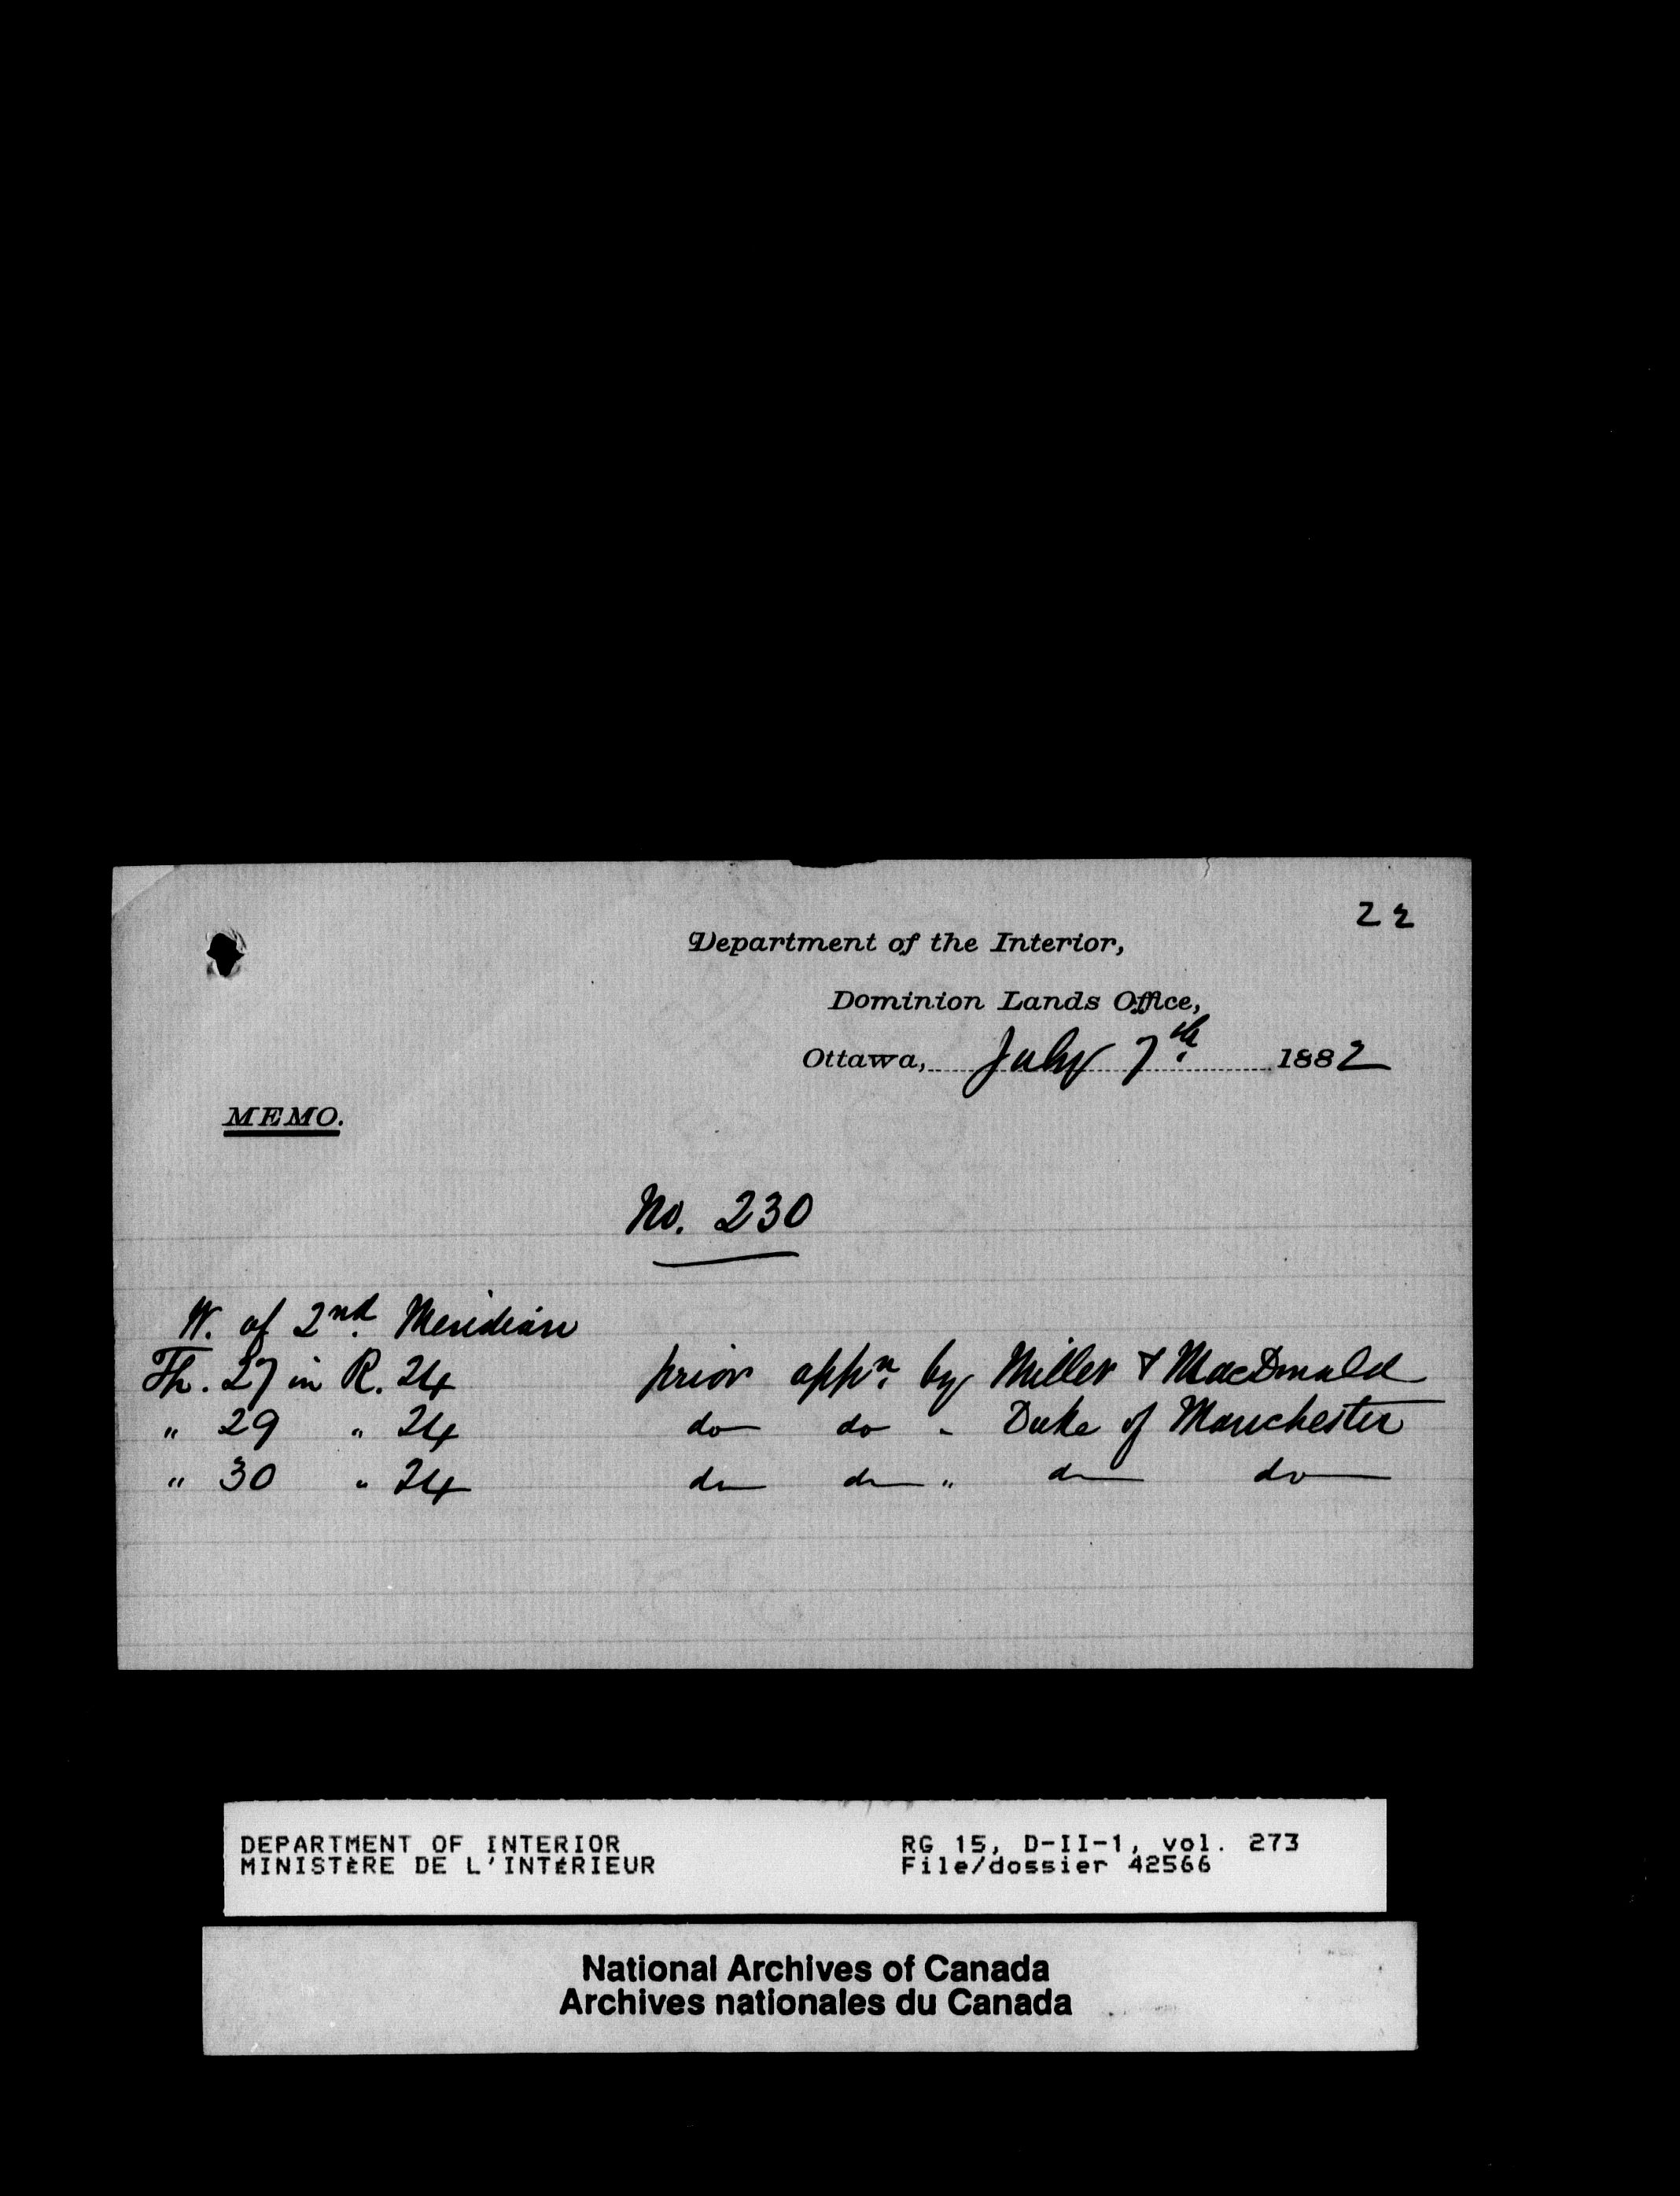 22
Department of the Interior,
Dominion Lands Office,
Ottawa, July 7th 1882
MEMO.
No. 230
W. of 2nd Meridian
Tp. 27 in R. 24 prior appn. by Miller & MacDonald
" 29 " 24 do do " Duke of Manchester
" 30 " 24 do do " do do
DEPARTMENT OF INTERIOR RG 15, D-II-1, vol. 273
MINISTÈRE DE L'INTÉRIEUR File/dossier 42566
National Archives of Canada
Archives nationales du Canada